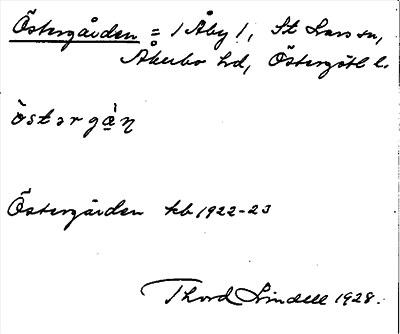 Östergården = / Åby /, St Lars sn,
Åkerbo hd, Östergötl l.
östərgàṇ
Östergården kb 1922-23
Thord Lindell 1928.